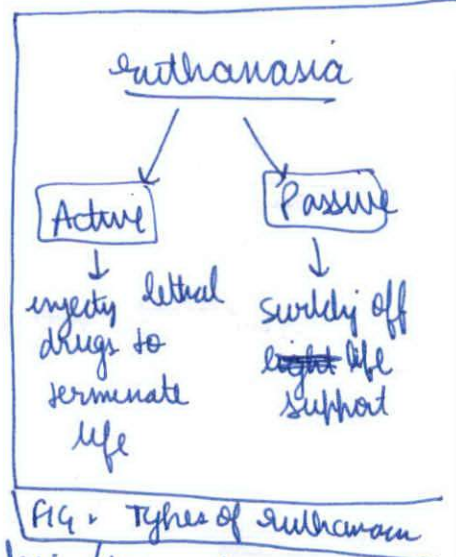 Euthanasia
Active
Passive
injecting lethal
drugs to
terminate
life
switching off
life
support
FIG. Types of Euthanasia